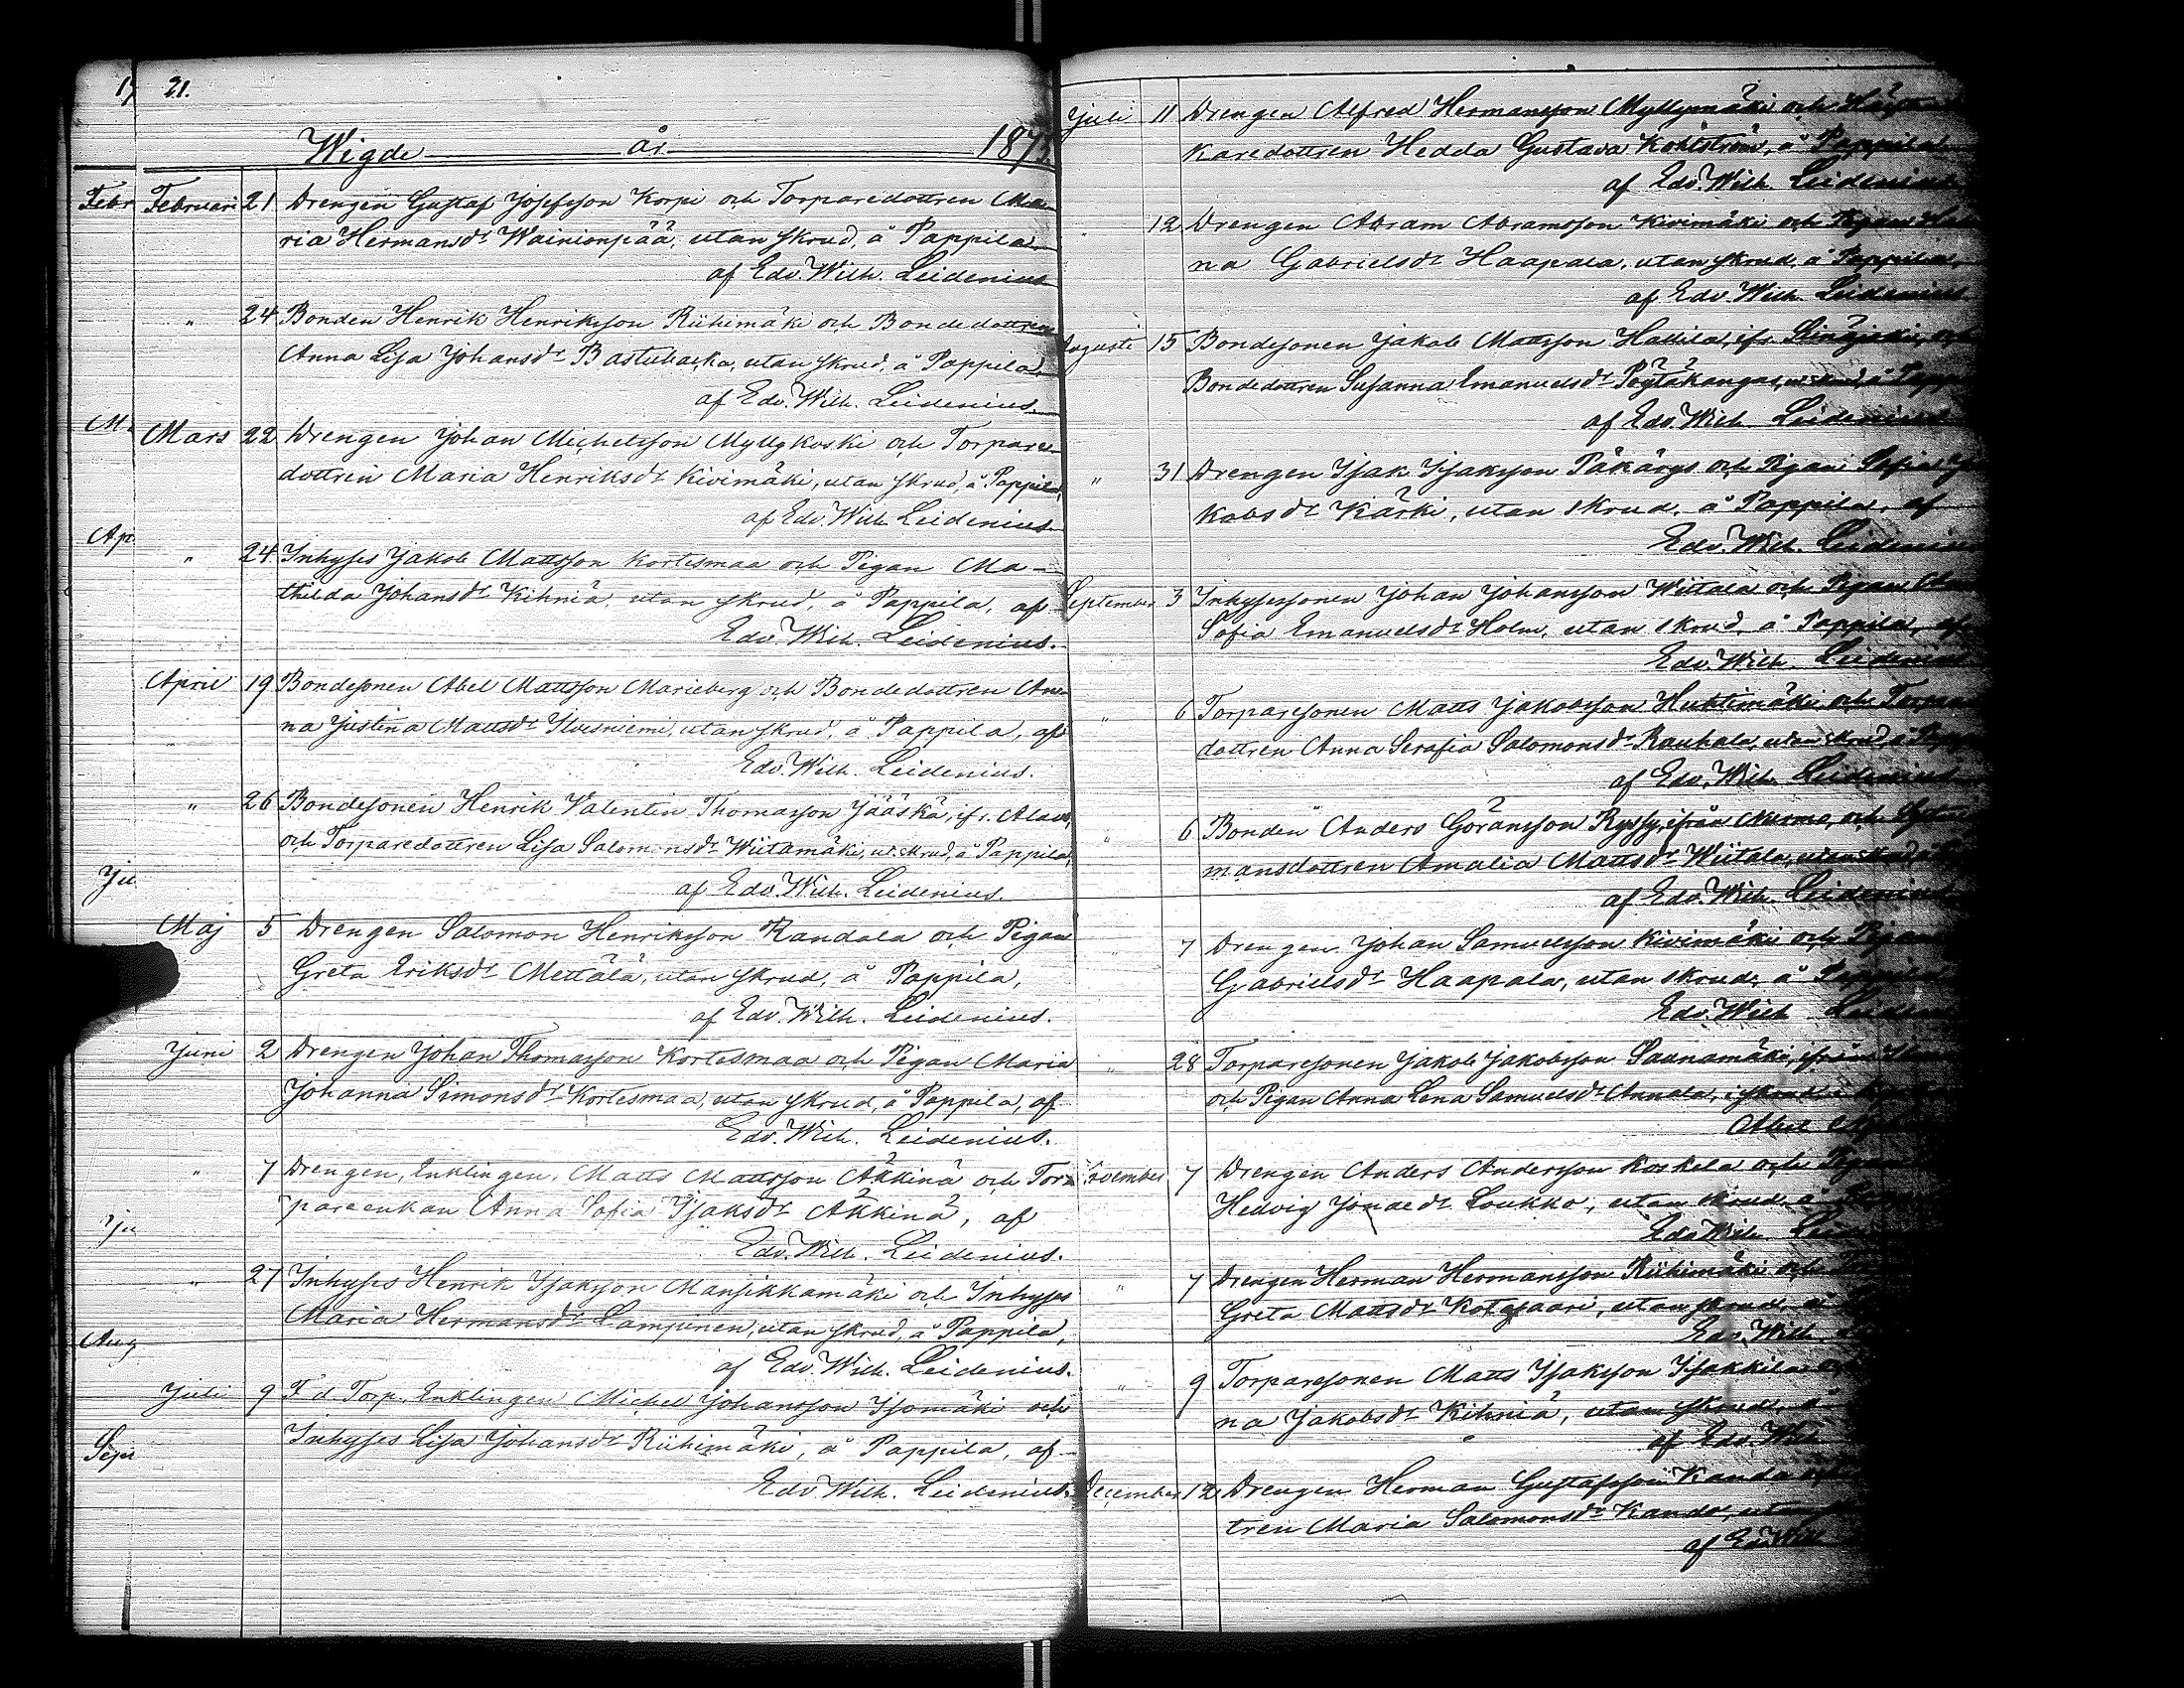 21.
Wigde år 187
Februari 21 Drengen Gustaf Josefsson Korpi och Torparedottren Ma-
ria Hermansdr Wainionpää, utan skrud, å Pappila
af Edv. Wilh. Leidenius
" 24 Bonden Henrik Henriksson Riihimäki och Bondedottren
Anna Lisa Johansdr Bastubacka, utan skrud, å Pappila,
af Edv. Wilh. Leidenius.
Mars 22 Drengen Johan Michelsson Myllykoski och Torpare-
dottren Maria Henriksdr Kivimäki, utan skrud, å Pappila,
af Edv. Wilh. Leidenius.
" 24 Inhyses Jakob Mattsson Kortesmaa och Pigan Ma-
thilda Johansdr Kihniä, utan skrud, å Pappila, af
Edv. Wilh. Leidenius.
April 19 Bondesonen Abel Mattsson Marieberg och Bondedottren An-
na Justina Mattsdr Ilvesniemi, utan skrud, å Pappila, af
Edv. Wilh. Leidenius.
" 26 Bondesonen Henrik Valentin Thomasson Jääskä, ifr. Alavo,
och Torparedottren Lisa Salomonsdr Wiitamäki, ut. skrud, å Pappila,
af Edv. Wilh. Leidenius.
Maj 5 Drengen Salomon Henriksson Randala och Pigan
Greta Eriksdr Mettälä, utan skrud, å Pappila,
af Edv. Wilh. Leidenius.
Juni 2 Drengen Johan Thomasson Kortesmaa och Pigan Maria
Johanna Simonsdr Kortesmaa, utan skrud, å Pappila, af
Edv. Wilh. Leidenius.
" 7 Drengen, Enklingen, Matts Mattsson Äkkinä och Tor-
pareenkan Anna Sofia Isaksdr Äkkinä, af
Edv. Wilh. Leidenius.
" 27 Inhyses Henrik Isaksson Mansikkamäki och Inhyses
Maria Hermansdr Lampinen, utan skrud, å Pappila,
af Edv. Wilh. Leidenius.
Juli 9 F d Torp. Enklingen Michel Johansson Isomäki och
Inhyses Lisa Johansdr Riihimäki, å Pappila, af
Edv Wilh. Leidenius.
Juli 11 Drengen Alfred Hermansson Myllymäki och
karedottren Hedda Gustava Kohlström, å Pappila
af Edv. Wilh. Leidenius.
" 12 Drengen Abram Abramsson Kivimäki och Pigan
na Gabrielsdr Haapala, utan skrud, å Pappila,
af Edv. Wilh. Leidenius
Augusti 15 Bondesonen Jakob Mattsson Hallila, ifr.
Bondedottren Susanna Emanuelsdr Pöytäkangas, ut. skrud, å
af Edv. Wilh. Leidenius
" 31 Drengen Isak Isaksson Päkärys och Pigan Sofia Ja-
kobsdr Kärki, utan skrud, å Pappila, af
Edv. Wilh. Leidenius
September 3 Inhysessonen Johan Johansson Wiitala och Pigan
Sofia Emanuelsdr Holm, utan skrud, å Pappila, af
Edv. Wilh. Leidenius
" 6 Torparesonen Matts Jakobsson Huhtimäki och
dottren Anna Serafia Salomonsdr Rauhala, utan skrud, å
af Edv. Wilh. Leidenius
" 6 Bonden Anders Göransson Ryssy, ifrån Nurmo, och
mansdottren Amalia Mattsdr Wiitala, utan skrud
af Edv. Wilh. Leidenius
" 7 Drengen Johan Samuelsson Kivimäki och Pigan
Gabrielsdr Haapala, utan skrud, å Pappila
Edv. Wilh. Leidenius
" 28 Torparesonen Jakob Jakobsson Saunamäki, ifrån
och Pigan Anna Lena Samuelsdr Annala, i skrud
Abel
November 7 Drengen Anders Andersson Koskela och Pigan
Hedvig Jonaedr Loukko, utan skrud, å
Edv Wilh. Leidenius
" 7 Drengen Herman Hermansson Riihimäki och
Greta Mattsdr Kotasaari, utan skrud, å
Edv. Wilh.
" 9 Torparesonen Matts Isaksson Isokkila
na Jakobsdr Kihniä, utan skrud, å
af Edv. Wilh
December 12 Drengen Herman Gustafsson Kanda
tren Maria Salomonsdr Kanda, utan
af Ed. Wilh